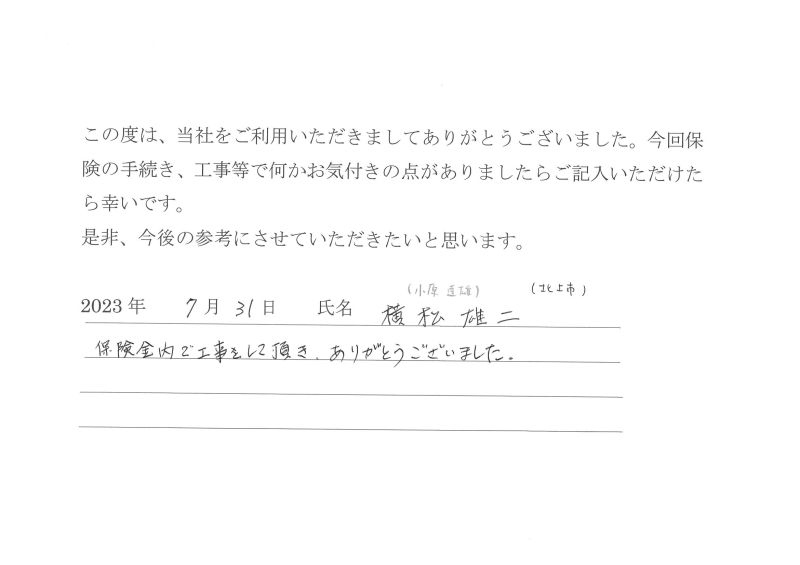 この度は、当社をご利用いただきましてありがとうございました。今回保
険の手続き、工事等で何かお気付きの点がありましたらご記入いただけた
ら幸いです。
是非、今後の参考にさせていただきたいと思います。
(小原 直雄) (北上市)
2023年 7月 31日 氏名 横松 雄二
保険金内で工事をして頂き、ありがとうございました。